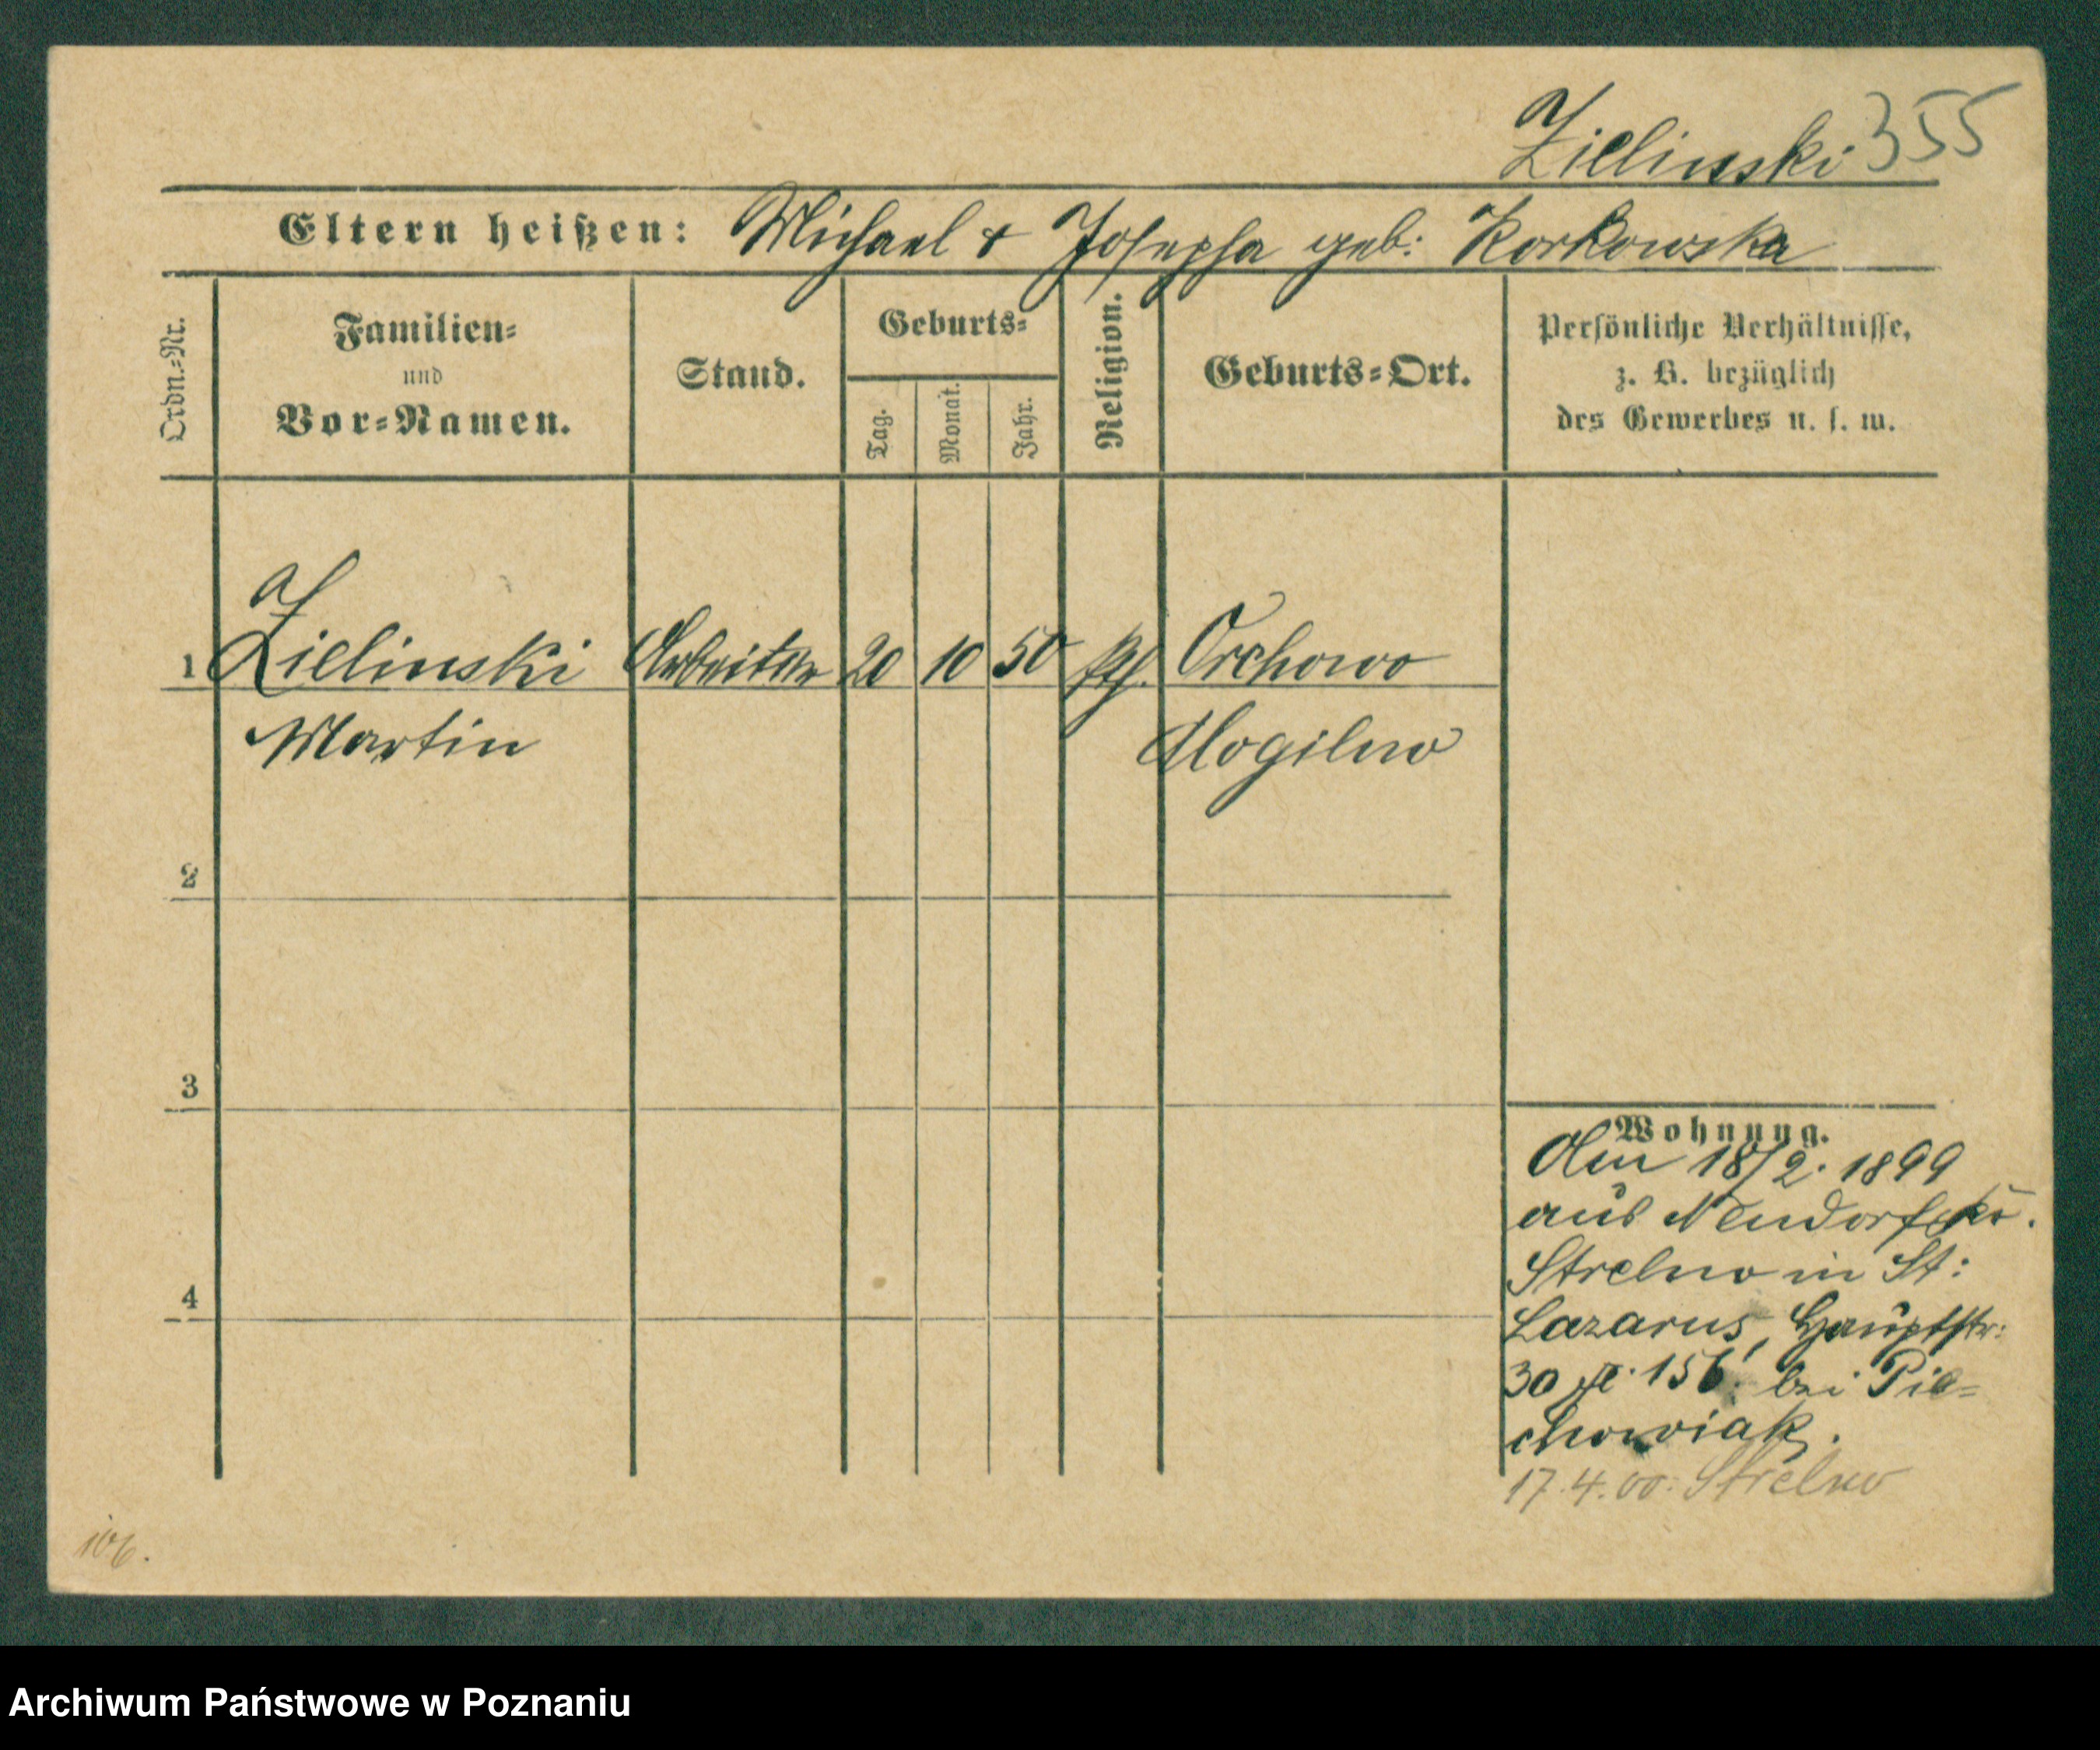 Zielinski 355
Eltern heißen: Michael & Josepha geb: Korkowska
Ordn.=Nr.
Familien=
und
Vor=Namen.
Stand.
Geburts=
Tag.
Monat.
Jahr.
Religion.
Geburts=Ort.
Persönliche Verhältnisse,
z. B. bezüglich
des Gewerbes u. s. w.
1 Zielinski Arbeiter 20 10 50 kth. Orchowo
Martin Mogilno
2
3
4
Wohnung.
Am 18/2. 1899
aus Neudorf
Strelno in St:
Lazarus, Hauptstr:
30 bei Pie=
chowiak.
17.4.00. Strelno
106.
Archiwum Państwowe w Poznaniu